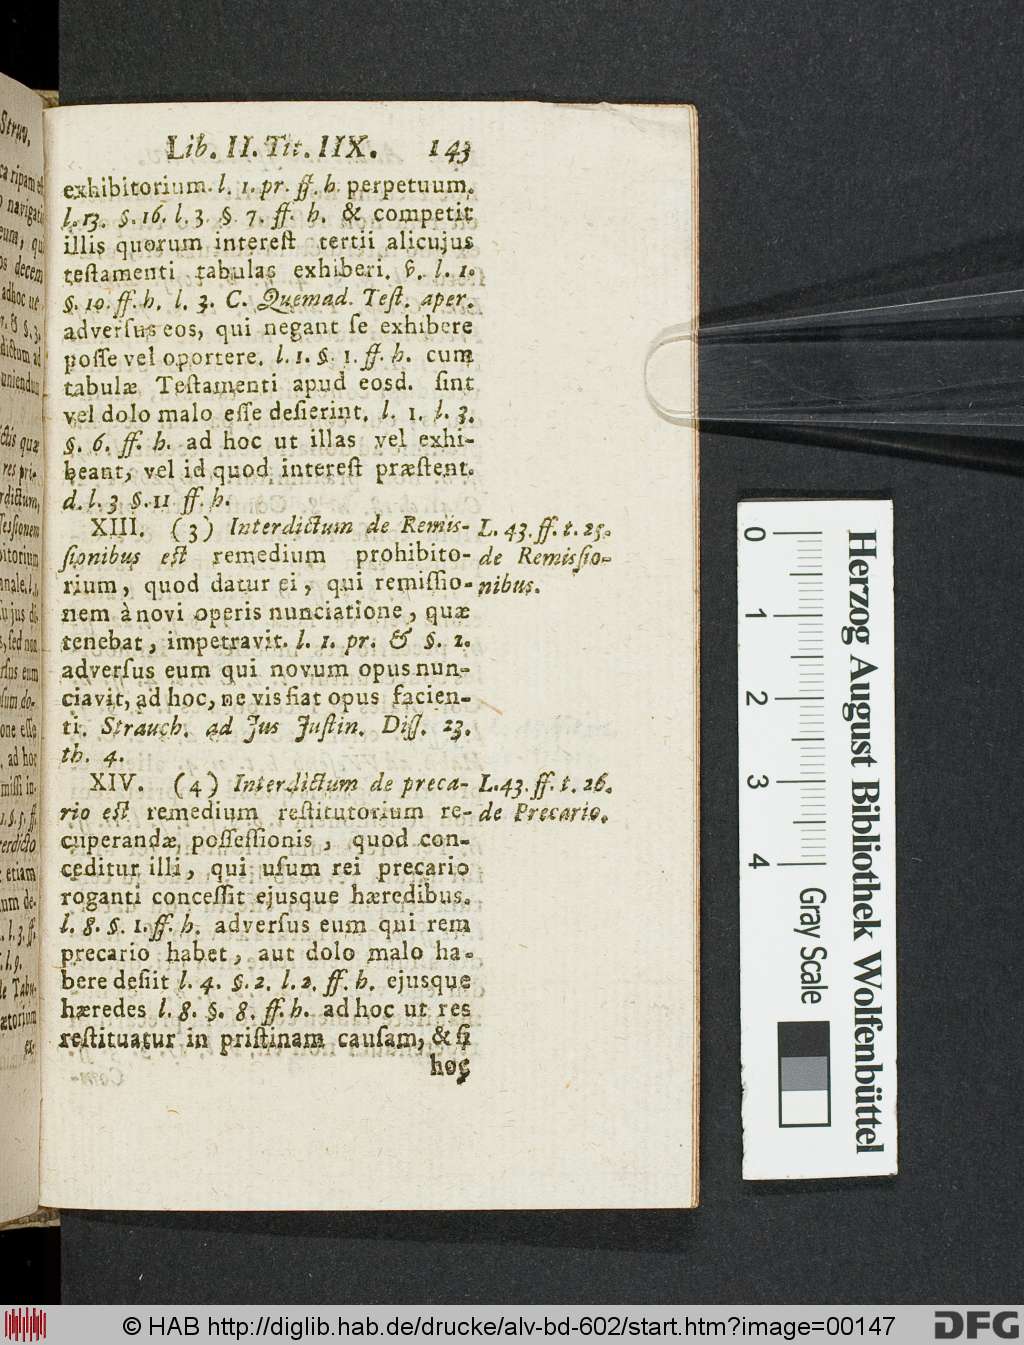 Lib. II. Tit. IIX. 143
exhibitorium. l. 1. pr. ff. h. perpetuum.
l. 13. §. 16. l. 3. §. 7. ff. h. & competit
illis quorum interest tertii alicujus
testamenti tabulas exhiberi. v. l. 1.
§. 10. ff. h. l. 3. C. Quemad. Test. aper.
adversus eos, qui negant se exhibere
posse vel oportere. l. 1. §. 1. ff. h. cum
tabulæ Testamenti apud eosd. sint
vel dolo malo esse desierint. l. 1. l. 3.
§. 6. ff. h. ad hoc ut illas vel exhi-
beant, vel id quod interest præstent.
d. l. 3 §. 11 ff. h.
XIII. (3) Interdictum de Remis-
sionibus est remedium prohibito-
rium, quod datur ei, qui remissio-
nem à novi operis nunciatione, quæ
tenebat, impetravit. l. 1. pr. & §. 2.
adversus eum qui novum opus nun-
ciavit, ad hoc, ne vis fiat opus facien-
ti. Strauch. ad Jus Justin. Diss. 23.
th. 4.
L. 43. ff. t. 25.
de Remissio-
nibus.
XIV. (4) Interdictum de preca-
rio est remedium restitutorium re-
cuperandæ possessionis, quod con-
ceditur illi, qui usum rei precario
roganti concessit ejusque hæredibus.
l. 8. §. 1. ff. h. adversus eum qui rem
precario habet, aut dolo malo ha-
bere desiit l. 4. §. 2. l. 2. ff. h. ejusque
hæredes l. 8. §. 8. ff. h. ad hoc ut res
restituatur in pristinam causam, & si
hoc
L. 43. ff. t. 26.
de Precario.
0 1 2 3 4
Gray Scale
Herzog August Bibliothek Wolfenbüttel
© HAB http://diglib.hab.de/drucke/alv-bd-602/start.htm?image=00147
DFG